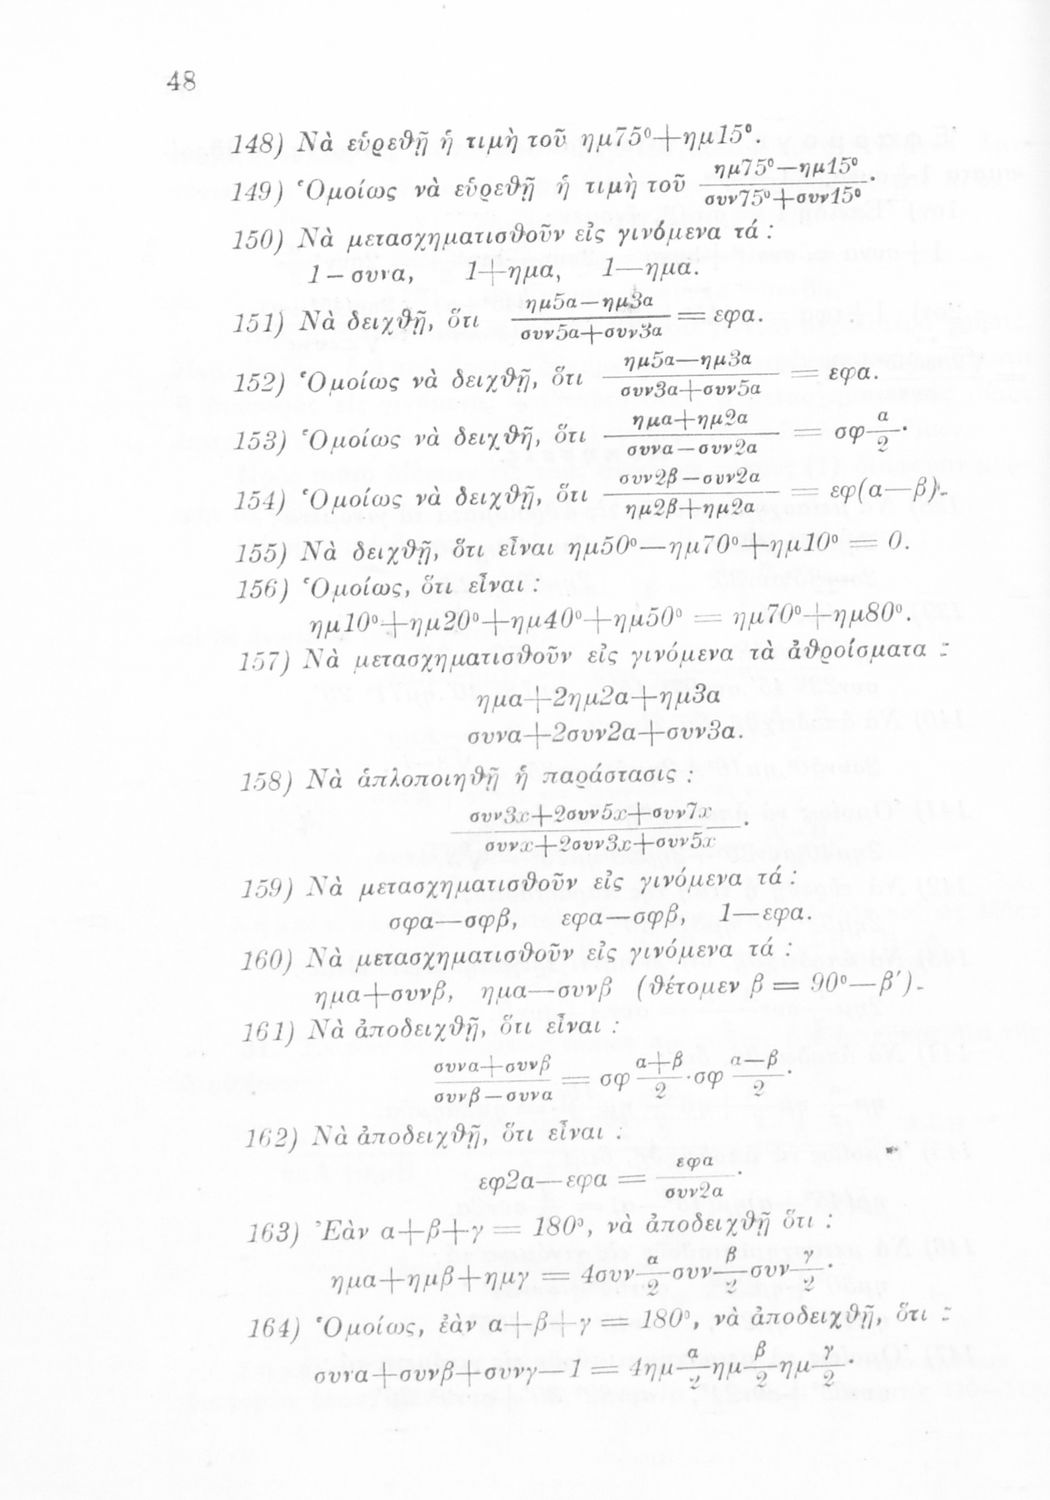 48
148) Νὰ εὑρεθῇ ἡ τιμὴ τοῦ ημ75⁰+ημ15⁰.
149) Ὁμοίως νὰ εὑρεθῇ ἡ τιμὴ τοῦ (ημ75⁰—ημ15⁰)/(συν75⁰+συν15⁰).
150) Νὰ μετασχηματισθοῦν εἰς γινόμενα τά :
1—συνα, 1+ημα, 1—ημα.
151) Νὰ δειχθῇ, ὅτι (ημ5α—ημ3α)/(συν5α+συν3α) = εφα.
152) Ὁμοίως νὰ δειχθῇ, ὅτι (ημ5α—ημ3α)/(συν3α+συν5α) = εφα.
153) Ὁμοίως νὰ δειχθῇ, ὅτι (ημα+ημ2α)/(συνα—συν2α) = σφ α/2.
154) Ὁμοίως νὰ δειχθῇ, ὅτι (συν2β—συν2α)/(ημ2β+ημ2α) = εφ(α—β).
155) Νὰ δειχθῇ, ὅτι εἶναι ημ50⁰—ημ70⁰+ημ10⁰ = 0.
156) Ὁμοίως, ὅτι εἶναι :
ημ10⁰+ημ20⁰+ημ40⁰+ημ50⁰ = ημ70⁰+ημ80⁰.
157) Νὰ μετασχηματισθοῦν εἰς γινόμενα τὰ ἀθροίσματα :
ημα+2ημ2α+ημ3α
συνα+2συν2α+συν3α.
158) Νὰ ἁπλοποιηθῇ ἡ παράστασις :
(συν3x+2συν5x+συν7x)/(συνx+2συν3x+συν5x).
159) Νὰ μετασχηματισθοῦν εἰς γινόμενα τά :
σφα—σφβ, εφα—σφβ, 1—εφα.
160) Νὰ μετασχηματισθοῦν εἰς γινόμενα τά :
ημα+συνβ, ημα—συνβ (θέτομεν β = 90⁰—β').
161) Νὰ ἀποδειχθῇ, ὅτι εἶναι :
(συνα+συνβ)/(συνβ—συνα) = σφ (α+β)/2 · σφ (α—β)/2.
162) Νὰ ἀποδειχθῇ, ὅτι εἶναι :
εφ2α—εφα = εφα/συν2α.
163) Ἐὰν α+β+γ = 180⁰, νὰ ἀποδειχθῇ ὅτι :
ημα+ημβ+ημγ = 4συν α/2 συν β/2 συν γ/2.
164) Ὁμοίως, ἐὰν α+β+γ = 180⁰, νὰ ἀποδειχθῇ, ὅτι :
συνα+συνβ+συνγ—1 = 4ημ α/2 ημ β/2 ημ γ/2.